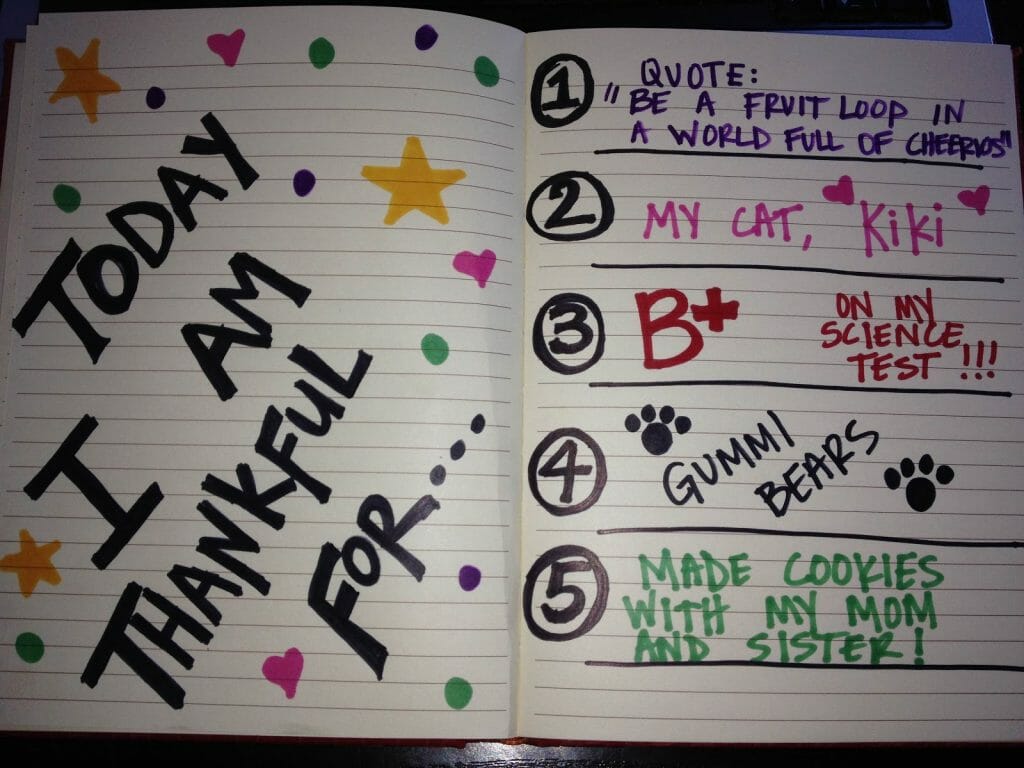 TODAY
I AM
THANKFUL
FOR....
1 QUOTE:
"BE A FRUIT LOOP IN
A WORLD FULL OF CHEERIOS"
2 MY CAT, KiKi
3 B+ ON MY
SCIENCE
TEST !!!
4 GUMMI
BEARS
5 MADE COOKIES
WITH MY MOM
AND SISTER!